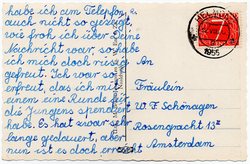 habe ich am Telefon
auch nicht so gezeigt,
wie froh ich über Deine
Nachricht war, so habe
ich mich doch riesig
gefreut. Ich war so
erfreut, das ich mit
einem eine Runde für
die Jungens spendiert
habe. Es hat zwar sehr
lange gedauert, aber
nun ist es doch erreicht
1955
7
An
Fräulein
W. F. Schönagen
Rosengracht 13
Amsterdam